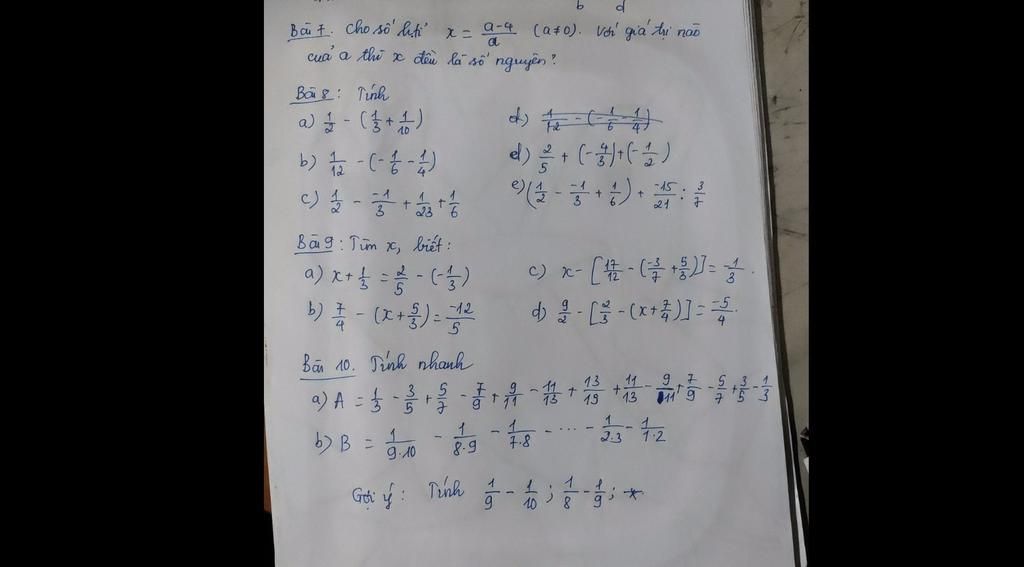 b d
Bài 7. Cho số hữu tỉ x = \frac{a-4}{a} (a ≠ 0). Với giá trị nào
của a thì x đều là số nguyên?
Bài 8: Tính
a) \frac{1}{2} - (\frac{1}{3} + \frac{1}{10})
d) \frac{1}{12} - (-\frac{1}{6} - \frac{1}{4})
b) \frac{1}{12} - (-\frac{1}{6} - \frac{1}{4})
d) \frac{2}{5} + (-\frac{4}{3}) + (-\frac{1}{2})
c) \frac{1}{2} - \frac{-1}{3} + \frac{1}{23} + \frac{1}{6}
e) (\frac{1}{2} - \frac{-1}{3} + \frac{1}{6}) + \frac{-15}{21} : \frac{3}{7}
Bài 9: Tìm x, biết:
a) x + \frac{1}{3} = \frac{2}{5} - (-\frac{1}{3})
c) x - [\frac{17}{12} - (\frac{-3}{7} + \frac{5}{3})] = -\frac{1}{3}.
b) \frac{7}{4} - (x + \frac{5}{3}) = \frac{-12}{5}
d) \frac{9}{2} - [\frac{2}{3} - (x + \frac{7}{4})] = \frac{-5}{4}.
Bài 10. Tính nhanh
a) A = \frac{1}{3} - \frac{3}{5} + \frac{5}{7} - \frac{7}{9} + \frac{9}{11} - \frac{11}{13} + \frac{13}{19} + \frac{11}{13} - \frac{9}{11} + \frac{7}{9} - \frac{5}{7} + \frac{3}{5} - \frac{1}{3}
b) B = \frac{1}{9.10} - \frac{1}{8.9} - \frac{1}{7.8} - ... - \frac{1}{2.3} - \frac{1}{1.2}
Gợi ý: Tính \frac{1}{9} - \frac{1}{10}; \frac{1}{8} - \frac{1}{9};